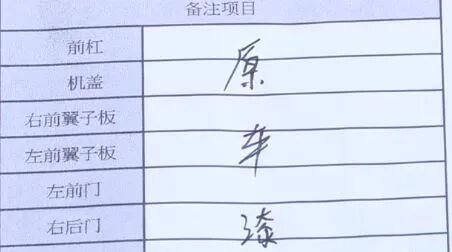 备注项目
前杠
机盖 原
右前翼子板
左前翼子板 车
左前门
右后门 漆